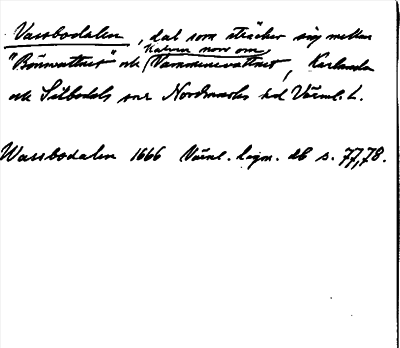 Vassbodalen, dal som sträcker sig mellan
Kalven norr om
"Bönvattnet" och Tammenevattnet, Karlanda
och Silbodals snr Nordmarks hd Värml. l.
Wassbodalen 1666 Värml. lagm. db s. 77, 78.